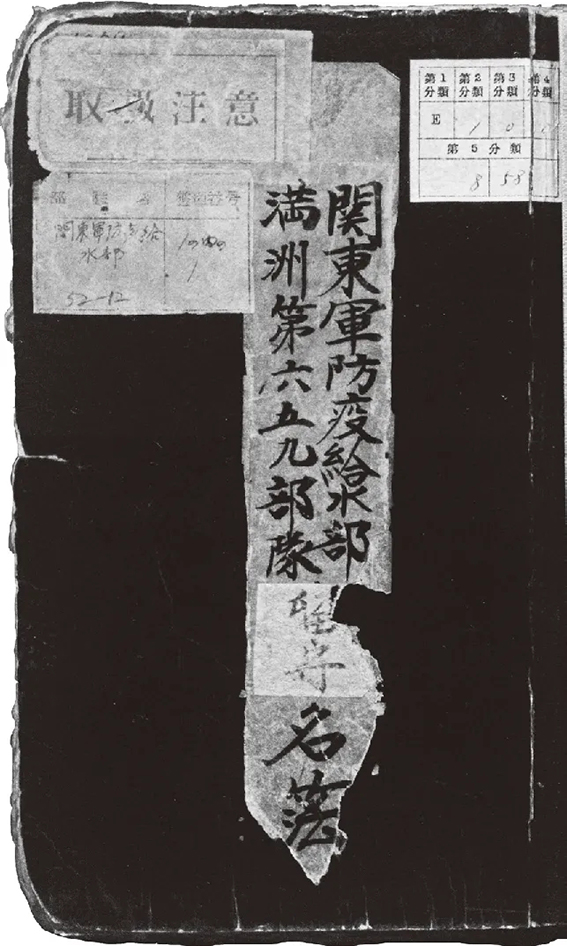 取扱注意
第1分類 第2分類 第3分類 第4分類
E 1 0
第5分類
8 58
関東軍防疫給水部
52-12
関東軍防疫給水部
満洲第六五九部隊
留守名簿